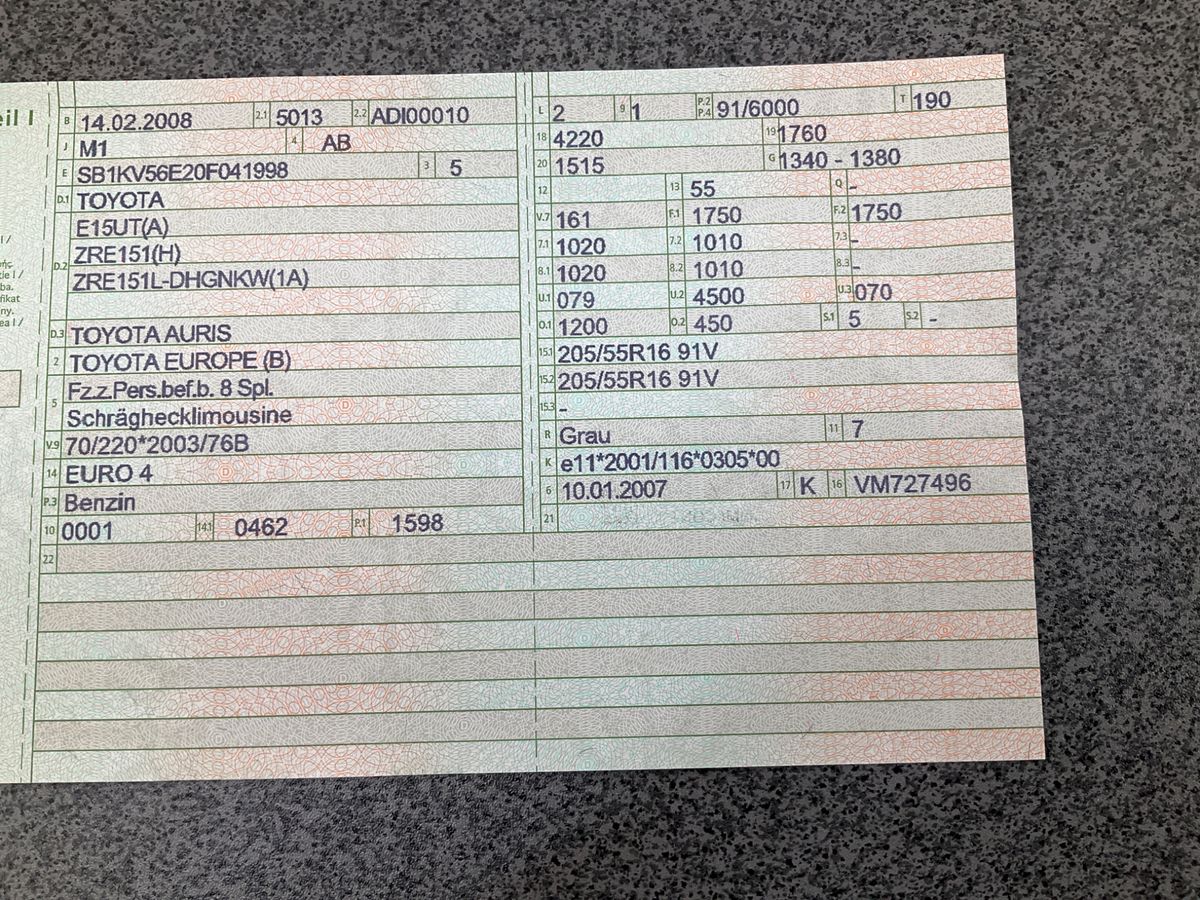 eil I
B 14.02.2008 2.1 5013 2.2 ADI00010
J M1 4 AB
E SB1KV56E20F041998 3 5
D.1 TOYOTA
D.2 E15UT(A)
ZRE151(H)
ZRE151L-DHGNKW(1A)
D.3 TOYOTA AURIS
2 TOYOTA EUROPE (B)
5 Fz.z.Pers.bef.b. 8 Spl.
Schräghecklimousine
V.9 70/220*2003/76B
14 EURO 4
P.3 Benzin
10 0001 14.1 0462 P.1 1598
22
L 2 9 1 P.2 P.4 91/6000 T 190
18 4220 19 1760
20 1515 G 1340 - 1380
12 13 55 Q -
V.7 161 F.1 1750 F.2 1750
7.1 1020 7.2 1010 7.3 -
8.1 1020 8.2 1010 8.3 -
U.1 079 U.2 4500 U.3 070
O.1 1200 O.2 450 S.1 5 S.2 -
15.1 205/55R16 91V
15.2 205/55R16 91V
15.3 -
R Grau 11 7
K e11*2001/116*0305*00
6 10.01.2007 17 K 16 VM727496
21